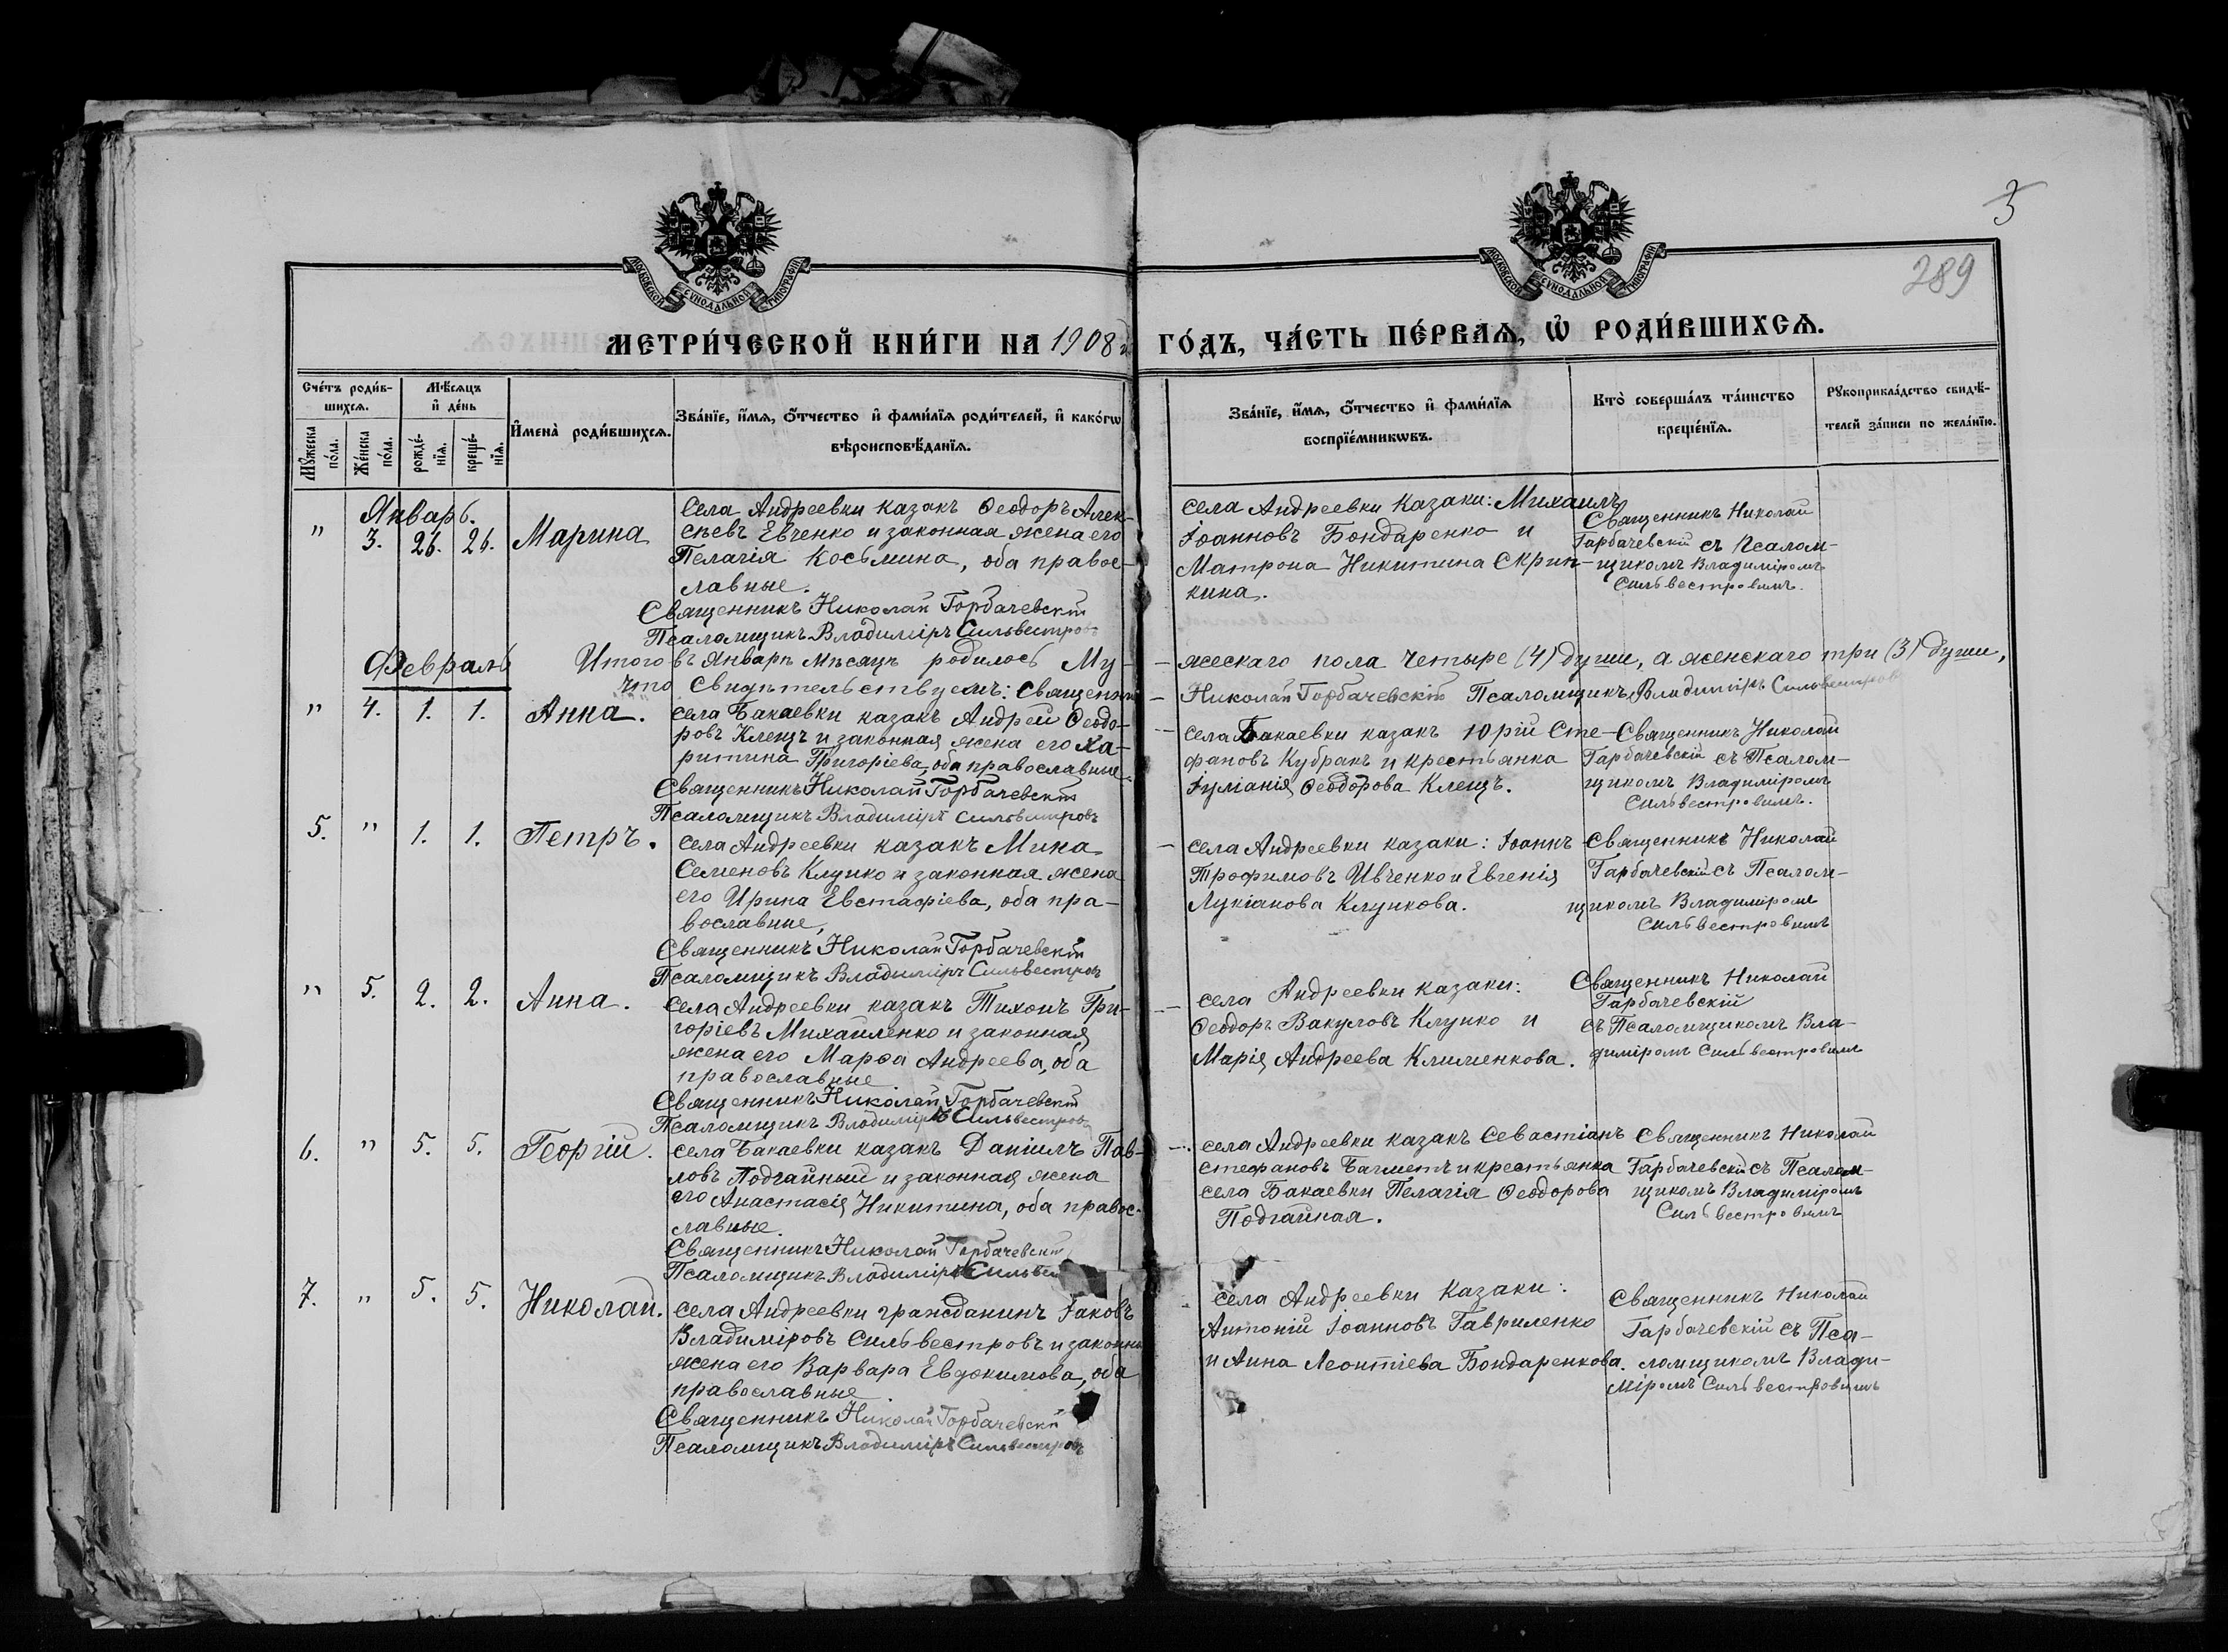 3
289
МОСКОВСКОЙ СУНОДАЛЬНОЙ ТИПОГРАФІИ
МОСКОВСКОЙ СУНОДАЛЬНОЙ ТИПОГРАФІИ
МЕТРИ́ЧЕСКОЙ КНИ́ГИ НА 1908 й
ГО́ДЪ, ЧА́СТЬ ПЕ́РВАѦ, Ѡ҆ РОДИ́ВШИХСѦ.
Сче́тъ роди́в-
шихсѧ.
Мꙋ́жеска по́ла.
Же́нска по́ла.
Мѣ́сѧцъ
и҆ де́нь
рожде́-
нїѧ.
креще́-
нїѧ.
И҆мена̀ роди́вшихсѧ.
Зва́нїе, и҆́мѧ, ѻ҆́тчество и҆ фами́лїѧ роди́телей, и҆ како́гѡ
вѣроисповѣ́данїѧ.
Зва́нїе, и҆́мѧ, ѻ҆́тчество и҆ фами́лїѧ
воспрїе́мникѡвъ.
Кто̀ соверша́лъ та́инство
креще́нїѧ.
Рꙋкоприкла́дство свидѣ́-
телей за́писи по жела́нїю.
Январь.
" 3. 26. 26. Марина
села Андреевки казакъ Ѳеодоръ Алек-
сѣевъ Евченко и законная жена его
Пелагія Косьмина, оба правос-
лавные.
Священникъ Николай Горбачевскій
Псаломщикъ Владиміръ Сильвестровъ
села Андреевки казаки: Михаилъ
Іоанновъ Бондаренко и
Матрона Никитина Скрип-
кина.
Священникъ Николай
Гарбачевскій съ Псалом-
щикомъ Владиміромъ
Сильвестровымъ.
Февраль
Итого въ Январѣ мѣсяцѣ родилось Му-
жескаго пола четыре (4) души, а женскаго три (3) души,
что свидѣтельствуемъ: Священникъ
Николай Горбачевскій Псаломщикъ Владиміръ Сильвестровъ
" 4. 1. 1. Анна.
села Бакаевки казакъ Андрей Ѳеодо-
ровъ Клещъ и законная жена его Ха-
ритина Григоріева, оба православные.
Священникъ Николай Горбачевскій
Псаломщикъ Владиміръ Сильвестровъ
села Бакаевки казакъ Юрій Сте-
фановъ Кубракъ и крестьянка
Іуліанія Ѳеодорова Клещъ.
Священникъ Николай
Гарбачевскій съ Псалом-
щикомъ Владиміромъ
Сильвестровымъ.
5. " 1. 1. Петръ.
села Андреевки казакъ Мина
Семеновъ Клунко и законная жена
его Ирина Евстафіева, оба пра-
вославные,
Священникъ Николай Горбачевскій
Псаломщикъ Владиміръ Сильвестровъ
села Андреевки казаки: Іоаннъ
Трофимовъ Ивченко и Евгенія
Лукіанова Клункова.
Священникъ Николай
Гарбачевскій съ Псалом-
щикомъ Владиміромъ
Сильвестровымъ
" 5. 2. 2. Анна.
села Андреевки казакъ Тихонъ Гри-
горіевъ Михайленко и законная
жена его Марѳа Андреева, оба
православные
Священникъ Николай Горбачевскій
Псаломщикъ Владиміръ Сильвестровъ
села Андреевки казаки:
Ѳеодоръ Вакуловъ Клунко и
Марія Андреева Клименкова.
Священникъ Николай
Гарбачевскій
съ Псаломщикомъ Вла-
диміромъ Сильвестровымъ
6. " 5. 5. Георгій.
села Бакаевки казакъ Даніилъ Пав-
ловъ Подгайный и законная жена
его Анастасія Никитина, оба правос-
лавные.
Священникъ Николай Горбачевскій
Псаломщикъ Владиміръ Сильвес
села Андреевки казакъ Севастіанъ
Стефановъ Багметъ и крестьянка
села Бакаевки Пелагія Ѳеодорова
Подгайная.
Священникъ Николай
Гарбачевскій съ Псалом-
щикомъ Владиміромъ
Сильвестровымъ
7. " 5. 5. Николай.
села Андреевки гражданинъ Іаковъ
Владиміровъ Сильвестровъ и законна
жена его Варвара Евдокимова, оба
православные.
Священникъ Николай Горбачевскій
Псаломщикъ Владиміръ Сильвестровъ
села Андреевки казаки:
Антоній Іоанновъ Гавриленко
и Анна Леонтіева Бондаренкова.
Священникъ Николай
Гарбачевскій съ Пса-
ломщикомъ Влади-
міромъ Сильвестровымъ